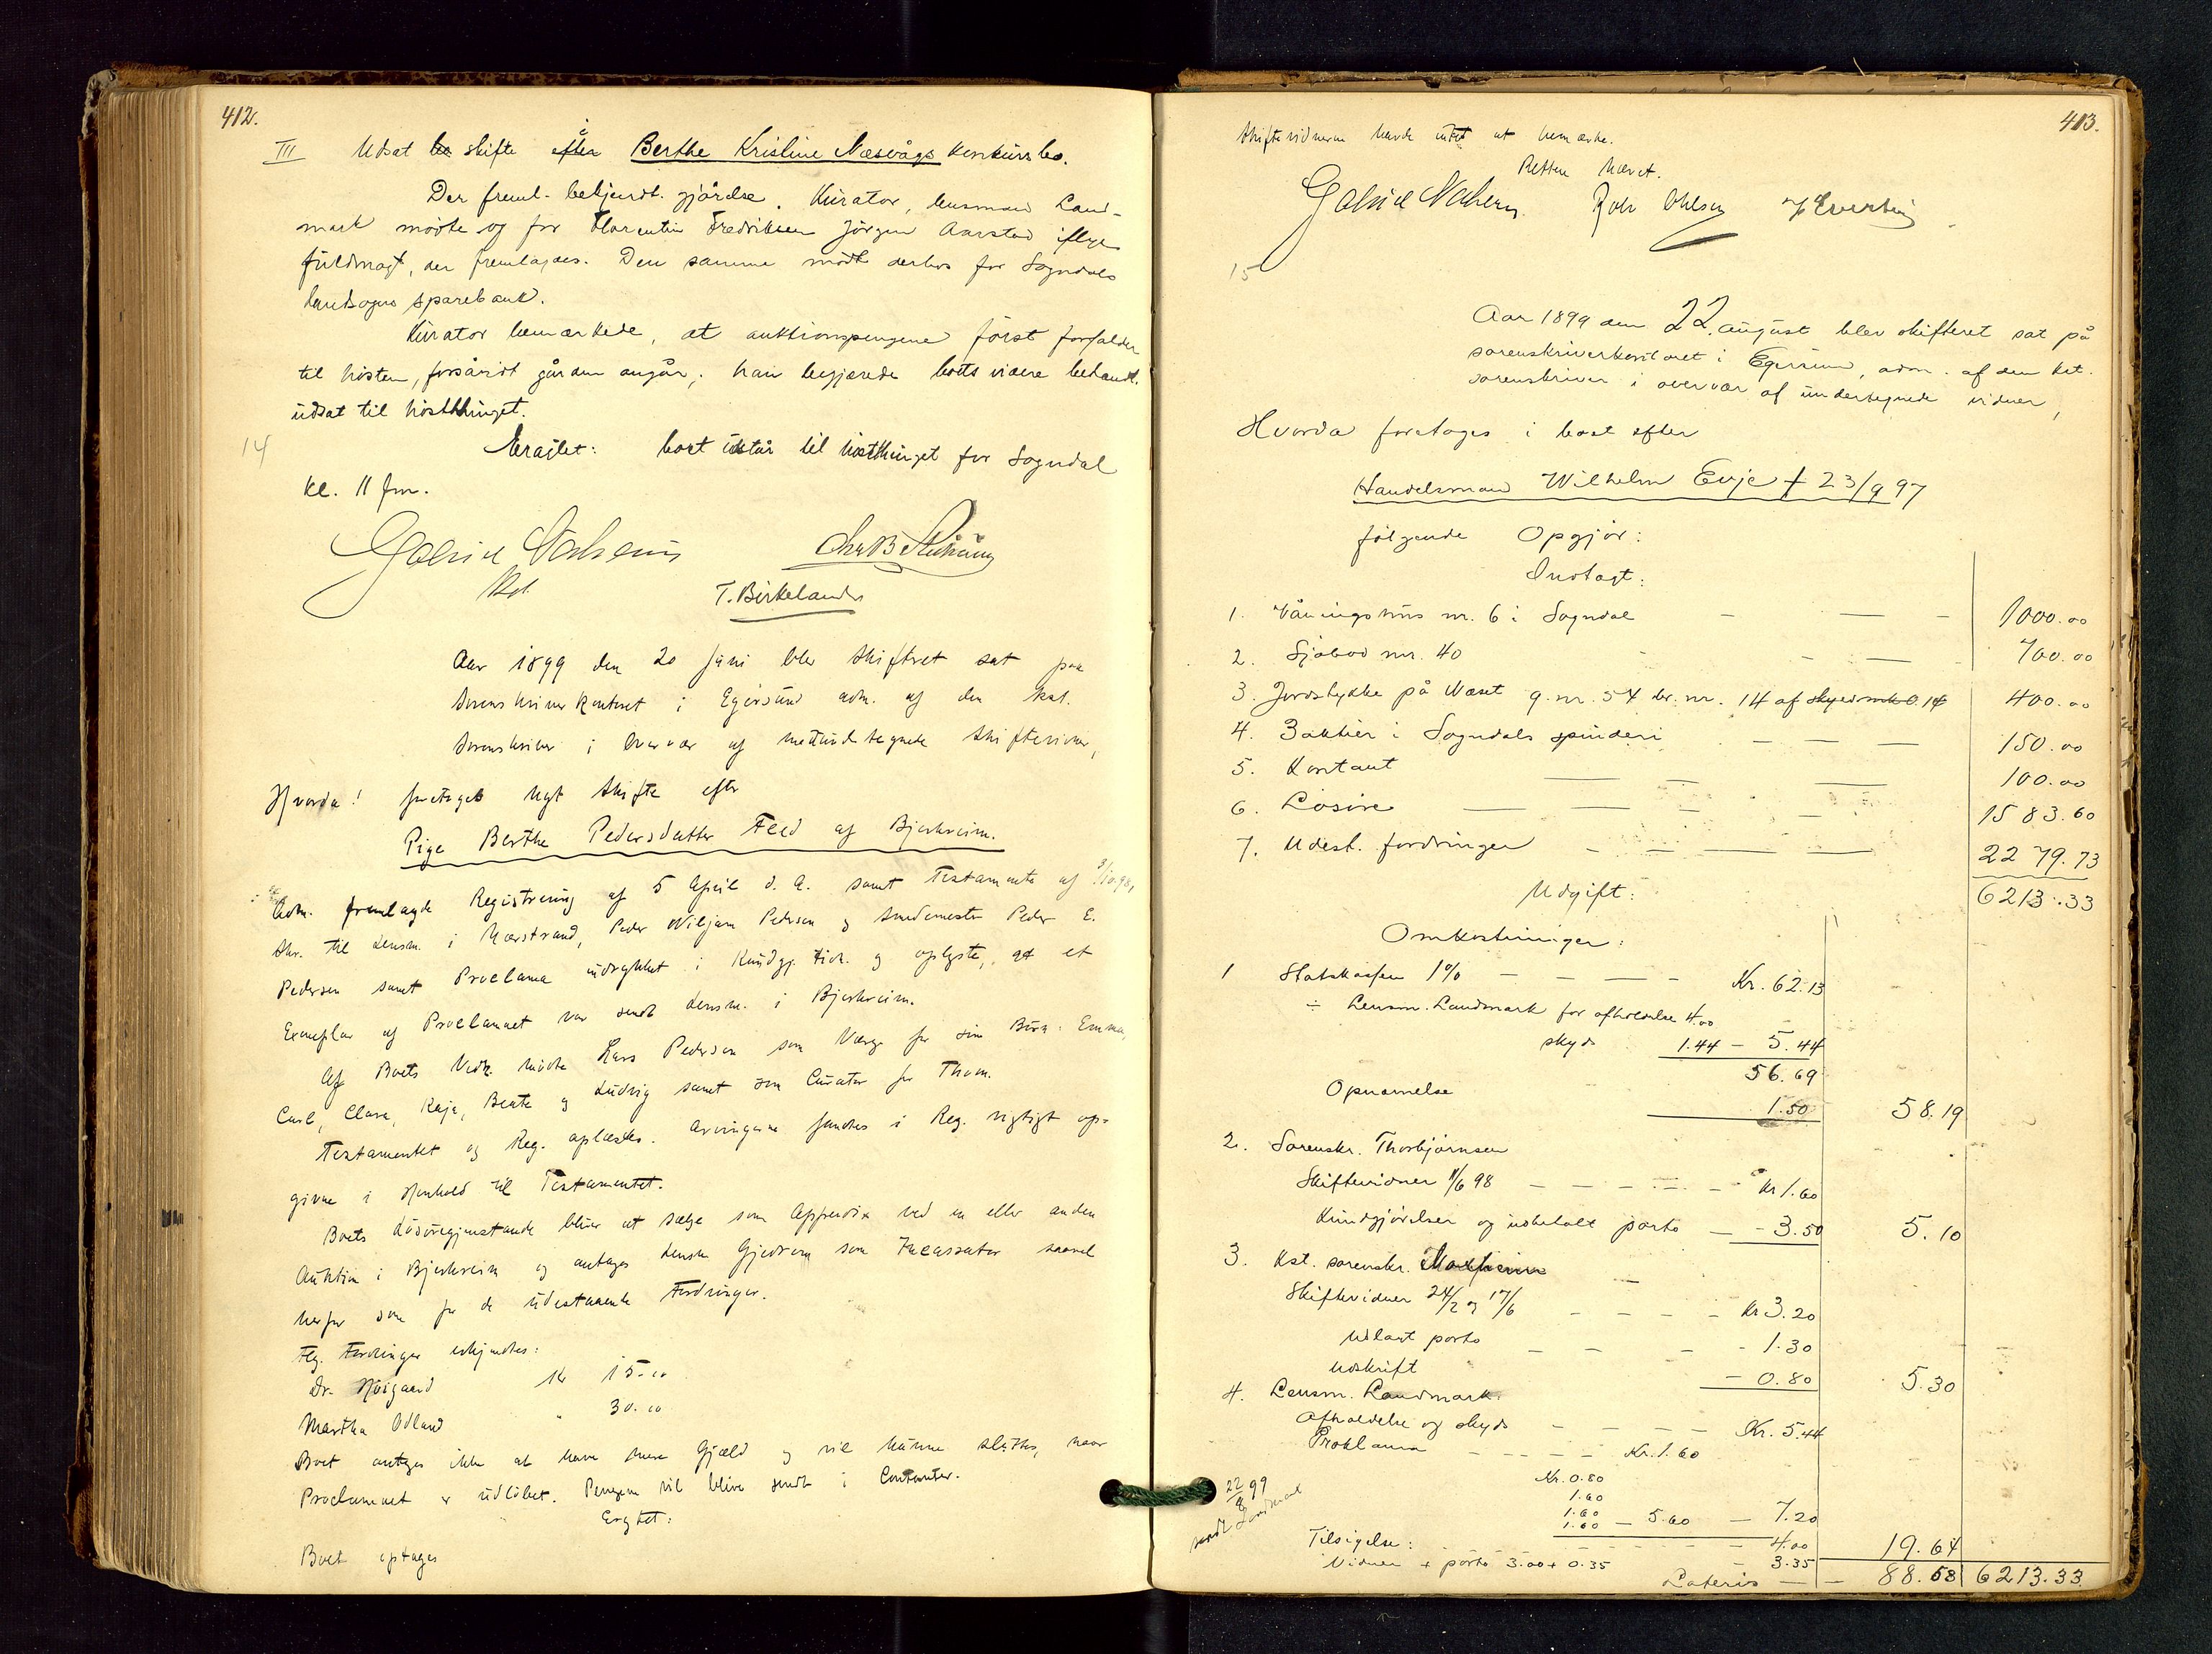 412.
III Udsat bo skifte efter å Berthe Kristine Næsvågs konkursbo.
Der freml. bekjendt. gjørelse. Kurator, lensmand Land-
mark mødte og for Florentin Fredriksen Jørgen Aarstad iflge
fuldmagt, der fremlagdes. Den samme mødte derhos for Sogndals
landsogns sparebank.
Kurator bemærkede, at auktionspengene først forfalder
til høsten, forsåvidt gården angår; han begjærede boets videre behandl.
udsat til høstthinget.
14
Eragtet: boet udstår til høstthinget for Sogndal
kl. 11 fm.
Kst.
T. Birkeland
Aar 1899 den 20 juni blev skiftret sat paa
Sorenskriverkontoret i Egersund adm. af den kst.
Sorenskriver i Overvær af medundertegnede skiftevidner,
Hvorda! foretoges nyt skifte efter
Pige Berthe Pedersdatter Feed af Bjerkreim.
Adm. fremlagde Registrering af 5 April d. A. samt Testamente af
Skr. til Lensm. i Nærstrand, Peder Wiljam Pedersen og Smedemester Peder E.
Pedersen samt Proclama indrykket i Kundgj. tid. og oplyste, at et
Exemplar af Proclamaet var sendt Lensm. i Bjerkreim.
Af Boets Vedk. mødte Lars Pedersen som Værge for sin Børn: Emma,
Carl, Clara, Kaja, Beate og Ludvig samt som Curator for Thom.
Testamentet og Reg. oplæstes. Arvingerne fandtes i Reg. rigtigt op-
givne i Henhold til Testamentet.
Boets Løsøregjenstande bliver at sælge som Appendix ved en eller anden
Auktion i Bjerkreim og antages Lensm. Gjedrem som Incassator saavel
herfor som for de udestaaende Fordringer.
Flg. Fordringer udkjendtes:
Dr. Høigaard Kr 15.00
Martha Odland " 30.00
Boet antages ikke at have mere Gjæld og vil kunne sluttes, naar
Proclamaet er udløbet. Pengene vil blive sendt i Contanter.
Eragtet:
Boet optages
413.
Skiftevidnerne havde intet at bemærke.
Retten hævet.
15
Aar 1899 den 22. august blev skifteret sat på
sorenskriverkontoret i Egersund, adm. af den kst.
sorenskriver i overvær af undertegnede vidner,
Hvorda foretoges i boet efter
Handelsmand Wilhelm Evje † 23/9 97
følgende Opgjør:
Indtægt:
1. Våningshus nr. 6 i Sogndal — — — 1000.00
2. Sjøbod nr. 40 — — — 700.00
3. Jordstykke på Næset g. nr. 54 br. nr. 14 af skyldmark 0.14 400.00
4. 3 aktier i Sogndals spinderi — — — 150.00
5. Kontant — — — 100.00
6. Løsøre — — — 1583.60
7. Udest. fordringer — — — — 2279.73
6213.33
Udgift:
Omkostninger:
1 Statskassen 1% — — — — Kr. 62.13
÷ Lensm. Landmark for afholdelse 4.00
skyds 1.44 — 5.44
56.69
Opnævnelse 1.50 58.19
2. Sorenskr. Thorbjørnsen
Skiftevidner 11/6 98 — — — — Kr 1.60
Kundgjørelser og udbetalt porto — - 3.50 5.10
3. Kst. sorenskr.
Skiftevidner 24/2 og 17/6 — — — — Kr 3.20
Udlagt porto — — — - 1.30
Udskrift - 0.80 5.30
4. Lensm. Landmark.
Afholdelse og skyds — — — — Kr. 5.44
Proklama — — — — Kr. 1.60
Kr. 0.80
1.60
1.60
1.60 — 5.60 — 7.20
22/8 99
sendt Landmark
Tilsigelse: — — — — 4.00 19.64
Vidner + porto 3.00 + 0.35 - 3.35
Lateris — — 88.58 6213.33